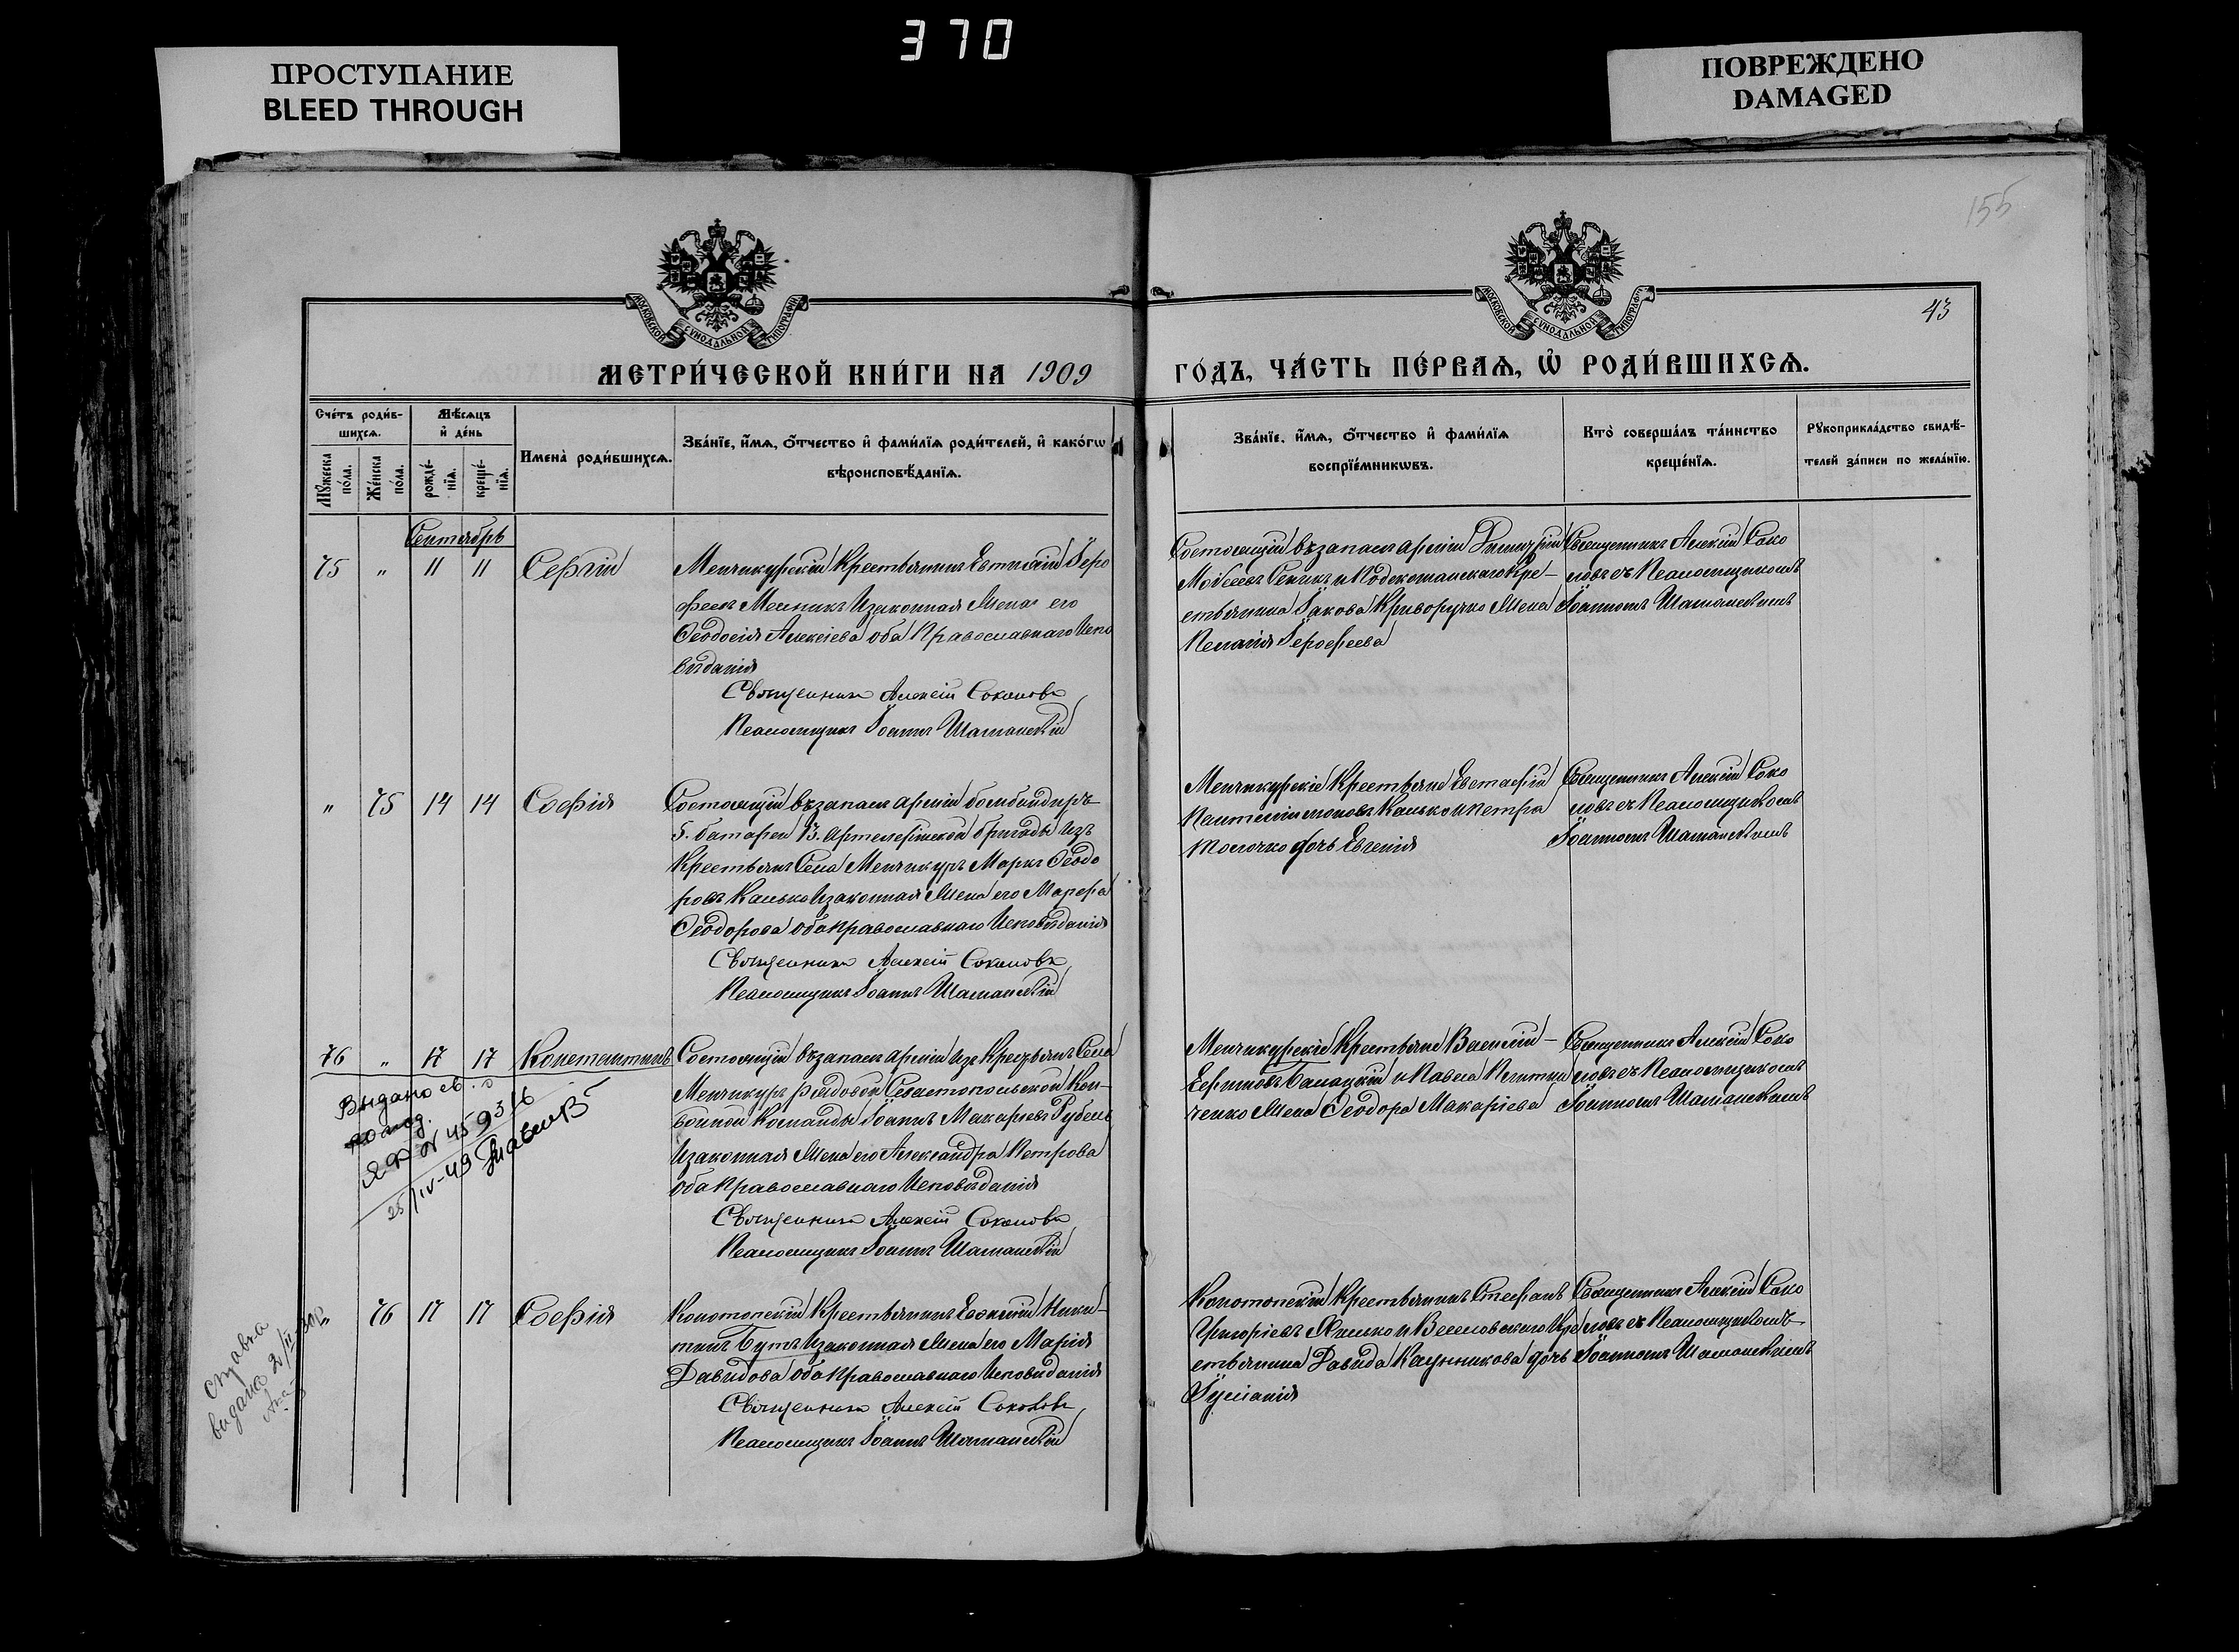 370
ПРОСТУПАНИЕ
BLEED THROUGH
ПОВРЕЖДЕНО
DAMAGED
155
43
МОСКОВСКОЙ СУНОДАЛЬНОЙ ТИПОГРАФІИ
МОСКОВСКОЙ СУНОДАЛЬНОЙ ТИПОГРАФІИ
МЕТРИ́ЧЕСКОЙ КНИ́ГИ НА 1909
ГО́ДЪ, ЧА́СТЬ ПЕ́РВАѦ, Ѡ҆ РОДИ́ВШИХСѦ.
Сче́тъ роди́в-
шихсѧ.
Мѣ́сѧцъ
и҆ де́нь
Мꙋ́жеска по́ла.
Же́нска по́ла.
рожде́-
нїѧ.
креще́-
нїѧ.
Имена̀ роди́вшихсѧ.
Зва́нїе, и҆́мѧ, ѻ҆́тчество и҆ фами́лїѧ роди́телей, и҆ како́гѡ
вѣроисповѣ́данїѧ.
Зва́нїе, и҆́мѧ, ѻ҆́тчество и҆ фами́лїѧ
воспрїе́мникѡвъ.
Кто̀ соверша́лъ та́инство
креще́нїѧ.
Рꙋкоприкла́дство свидѣ́-
телей за́писи по жела́нїю.
Сентябрь
75 " 11 11 Сергій
Менчикурскій Крестьянинъ Евтихій Іеро
феевъ Мельникъ и законная Жена его
Ѳеодосія Алексіева оба Православнаго Испо
вѣданія
Священникъ Алексій Соколовъ
Псаломщикъ Іоаннъ Шаманскій
Состоящій въ запасѣ арміи Димитрій
Моѵсеевъ Сеникъ и Крe-
стьянина Іакова Криворучко Жена
Пелагія Іерофеева
Священникъ Алексій Соко
ловъ съ Псаломщикомъ
Іоанномъ Шаманскимъ
" 75 14 14 Софія
Состоящій въ запасѣ арміи бомбандиръ
5. батареи 13. бригады изъ
Крестьянъ Села Менчикуръ Маркъ Ѳеодо
ровъ Калько и законная Жена его Марѳа
Ѳеодорова оба Православнаго Исповѣданія
Священникъ Алексій Соколовъ
Псаломщикъ Іоаннъ Шаманскій
Менчикурскіе Крестьяне Евстафій
Калько и Петра
Толочко дочь Евгенія
Священникъ Алексій Соко
ловъ съ Псаломщикомъ
Іоанномъ Шаманскимъ
76 " 17 17 Константинъ
Состоящій въ запасѣ арміи изъ Крестьянъ Села
Менчикуръ рядовой Севастопольской Кон-
войной Команды Іоаннъ Макаріевъ Рубель
и законная Жена его Александра Петрова
оба Православнаго Исповѣданія
Священникъ Алексій Соколовъ
Псаломщикъ Іоаннъ Шаманскій
Менчикурскіе Крестьяне Василій
Ефимовъ Балацкій и Павла
ченко Жена Ѳеодора Макаріева
Священникъ Алексій Соко
ловъ съ Псаломщикомъ
Іоанномъ Шаманскимъ
Выдано св.
25/IV-49
" 76 17 17 Софія
Конотопскій Крестьянинъ Евфимій Ники-
тинъ Бутъ и законная Жена его Марія
Давидова оба Православнаго Исповѣданія
Священникъ Алексій Соколовъ
Псаломщикъ Іоаннъ Шаманскій
Конотопскій Крестьянинъ Стефанъ
Григоріевъ и Веселовскаго Кре
стьянина Давида дочь
Іуліанія
Священникъ Алексій Соко
ловъ съ Псаломщикомъ
Іоанномъ Шаманскимъ
справка
видана